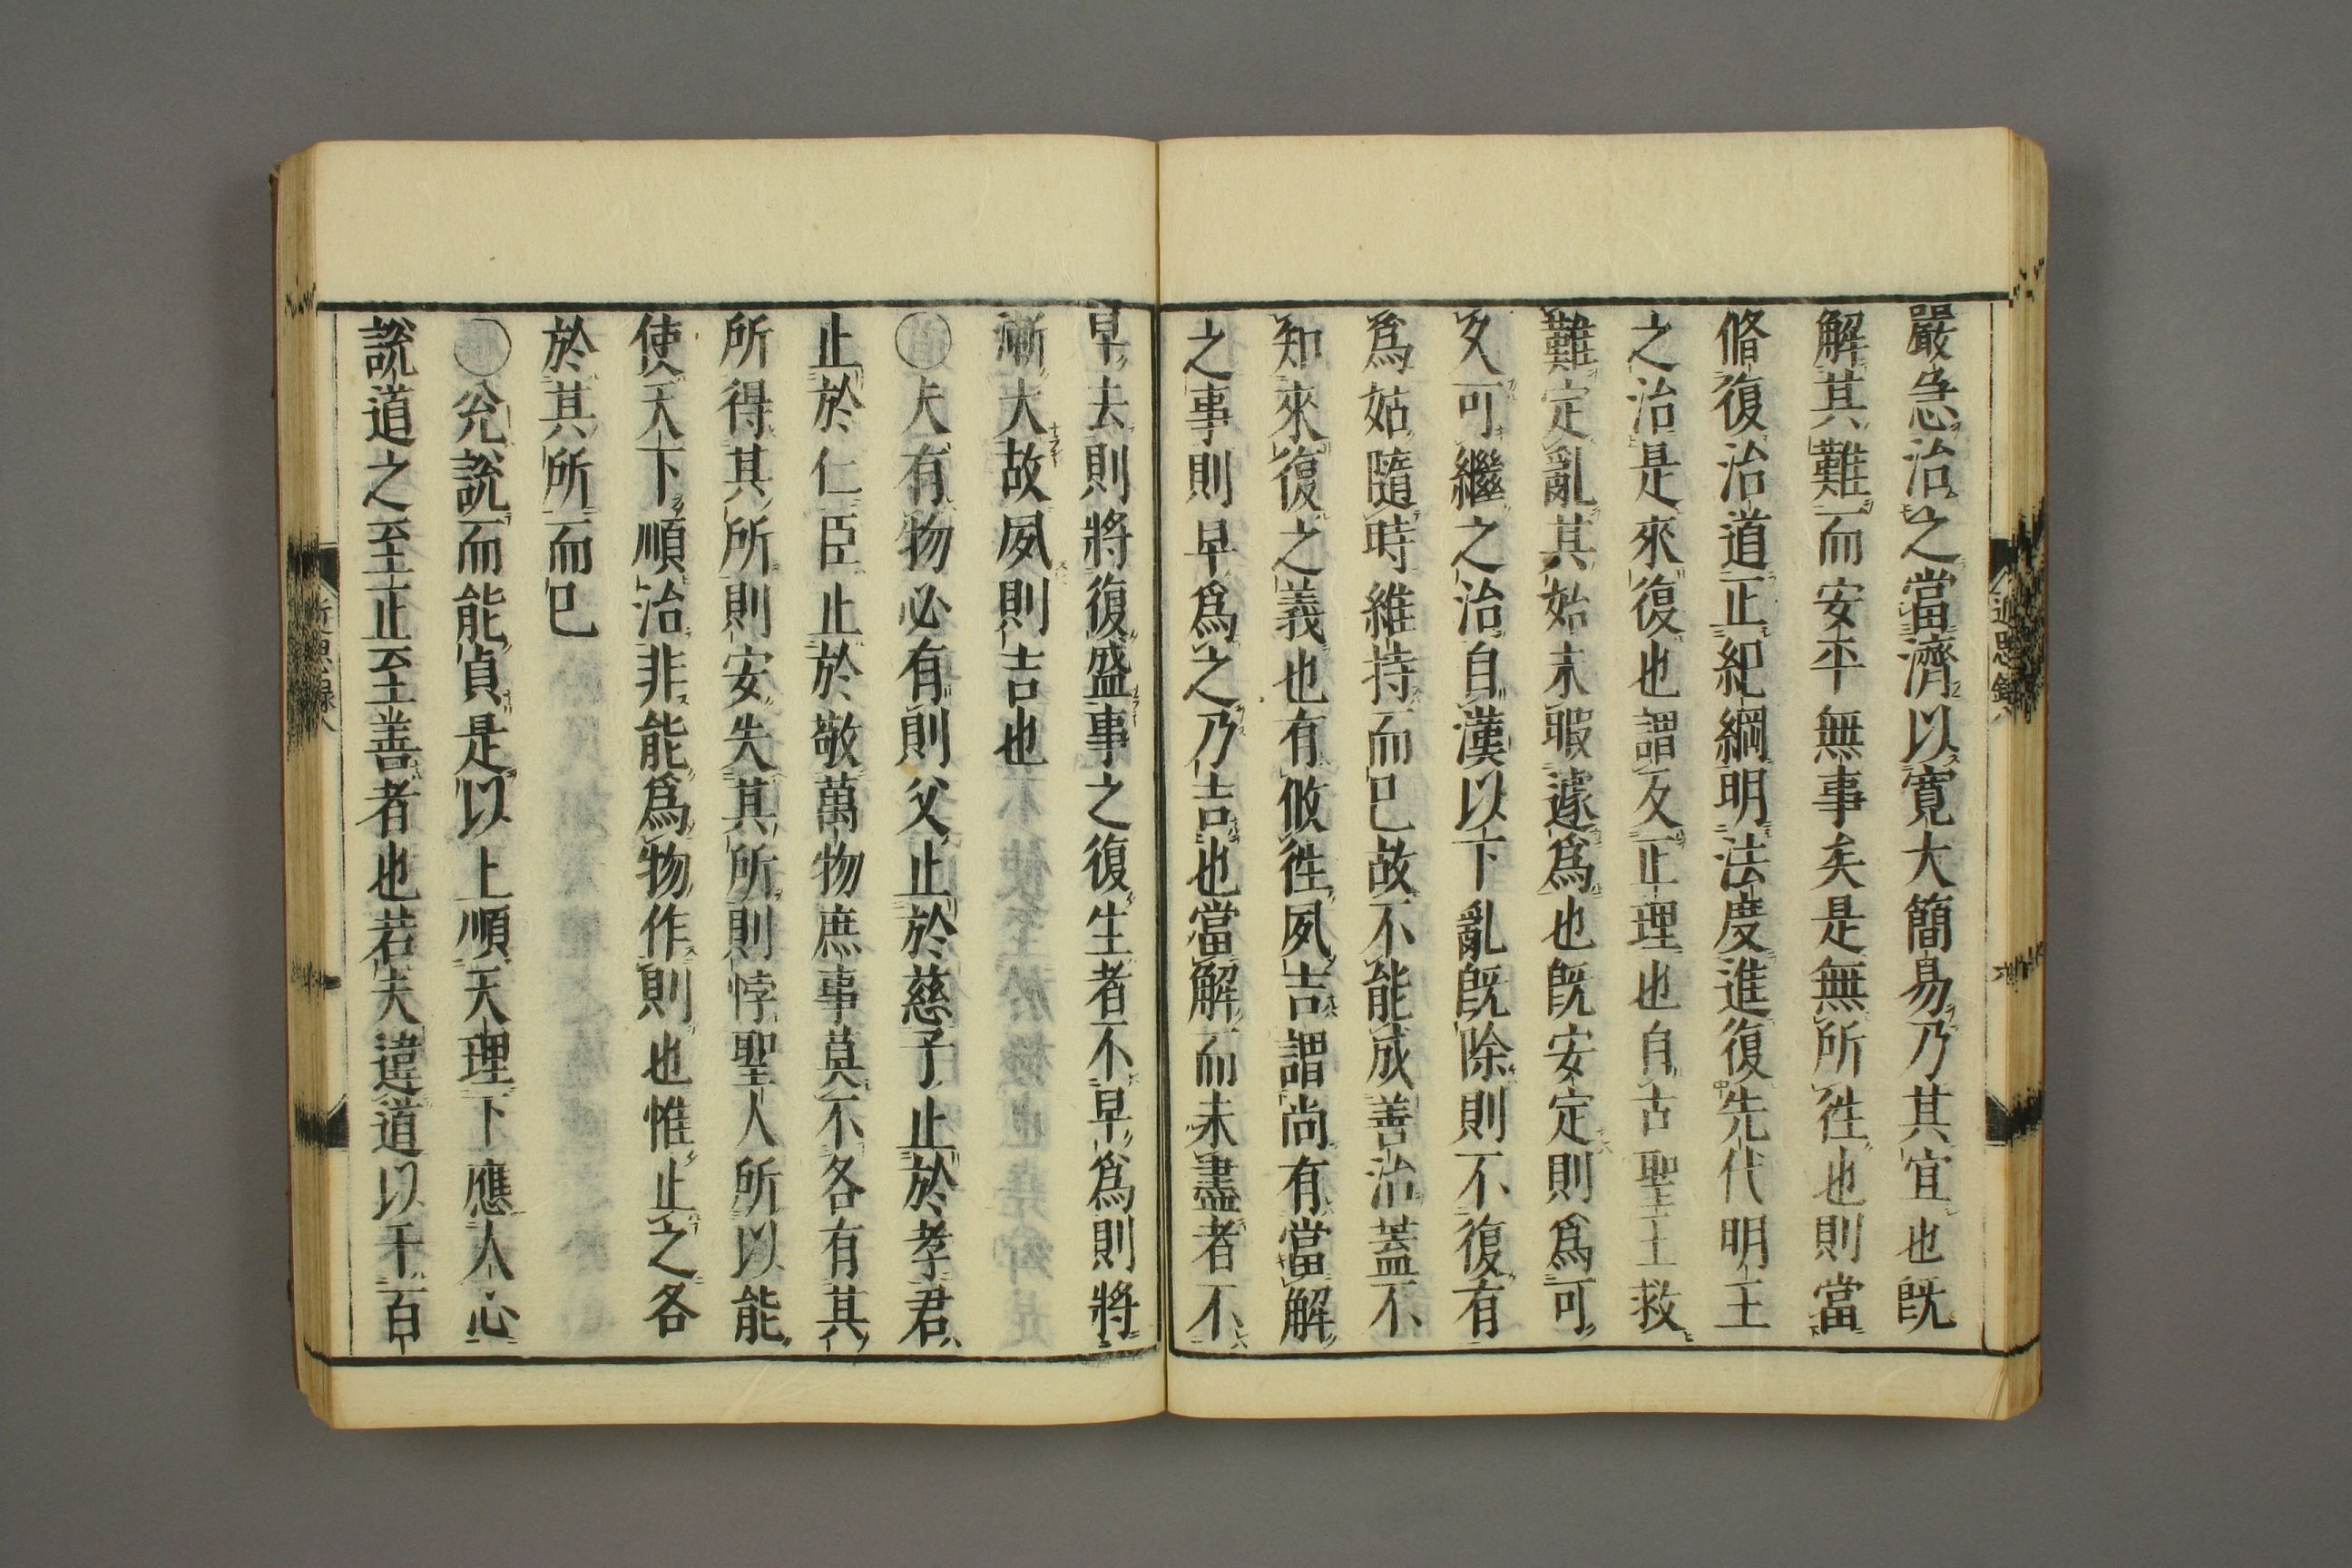 嚴急治之當濟以寬大簡易乃其宜也旣
解其難而安平無事矣是無所徃也則當
脩復治道正紀綱明法度進復先代明王
之治是來復也謂反正理也自古聖王救
難定亂其始未暇遽爲也旣安定則爲可
久可繼之治自漢以下亂旣除則不復有
爲姑隨時維持而已故不能成善治蓋不
知來復之義也有攸徃夙吉謂尚有當解
之事則早爲之乃吉也當解而未盡者不
早去則將復盛事之復生者不早爲則將
漸大故夙則吉也
○夫有物必有則父止於慈子止於孝君
止於仁臣止於敬萬物庶事莫不各有其
所得其所則安失其所則悖聖人所以能
使天下順治非能爲物作則也惟止之各
於其所而已
○兌說而能貞是以上順天理下應人心
說道之至正至善者也若夫違道以干百
近思録八
近思録八